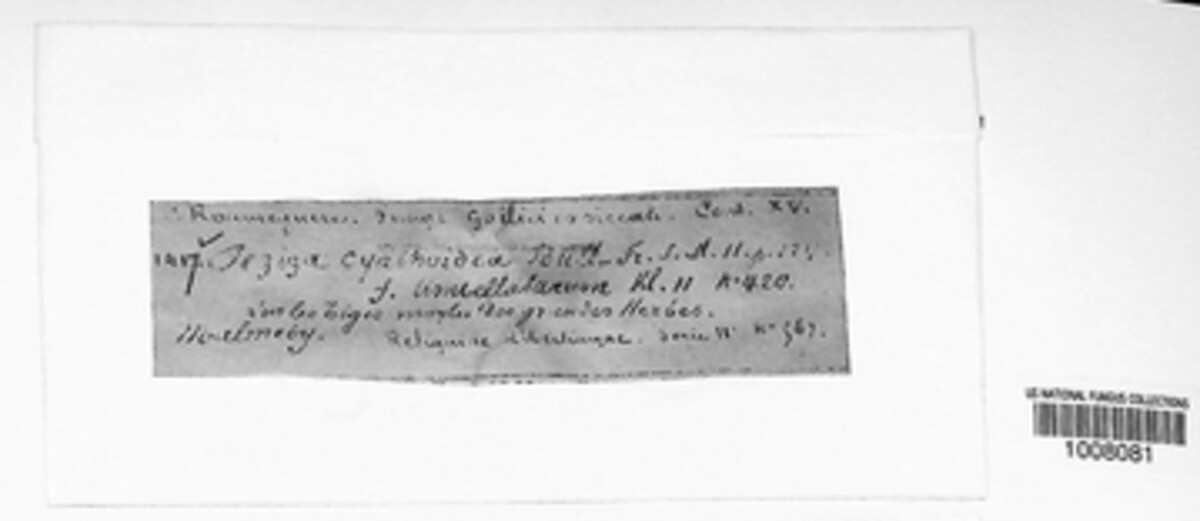 Roumeguere. Fungi Gallici exsiccati. Cent. XV.
Peziza cyathoidea Bull. Fr. S. M. II. p.
f. umbellatarum Kl. II No 420.
Sur les tiges mortes des grandes Herbes.
Reliquiae Libertianae. Serie No 567.
US NATIONAL FUNGUS COLLECTIONS
1008081